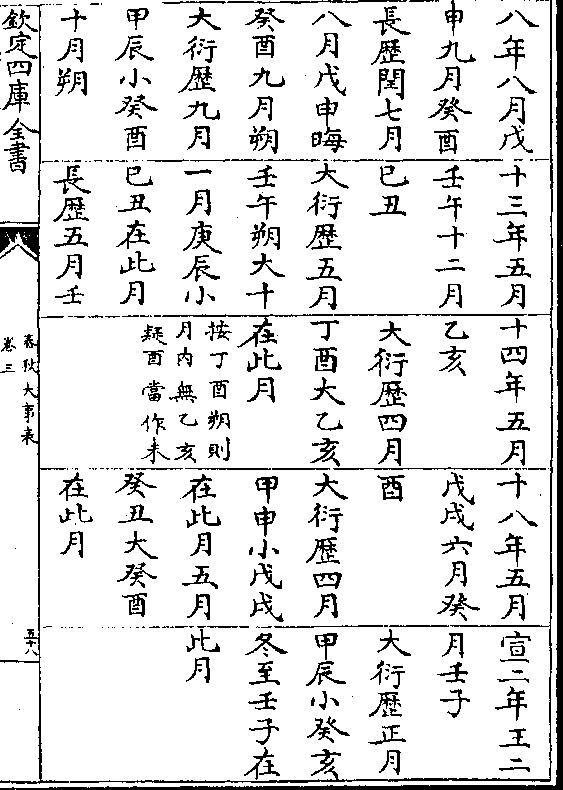 八年八月戊
申九月癸酉
長歴閏七月
八月戊申晦
癸酉九月朔
大衍歴九月
甲辰小癸酉
十月朔
十三年五月
壬午十二月
巳丑
大衍歴五月
壬午朔大十
一月庚辰小
巳丑在此月
長歴五月壬
十四年五月
乙亥
大衍歴四月
丁酉大乙亥
在此月
按丁酉朔則
月内無乙亥
疑酉當作未
十八年五月
戊戌六月癸
酉
大衍歴四月
甲申小戊戌
在此月五月
癸丑大癸酉
在此月
宣二年王二
月壬子
大衍歴正月
甲辰小癸亥
冬至壬子在
此月
欽定四庫全書
春秋大事表
卷三
五十八